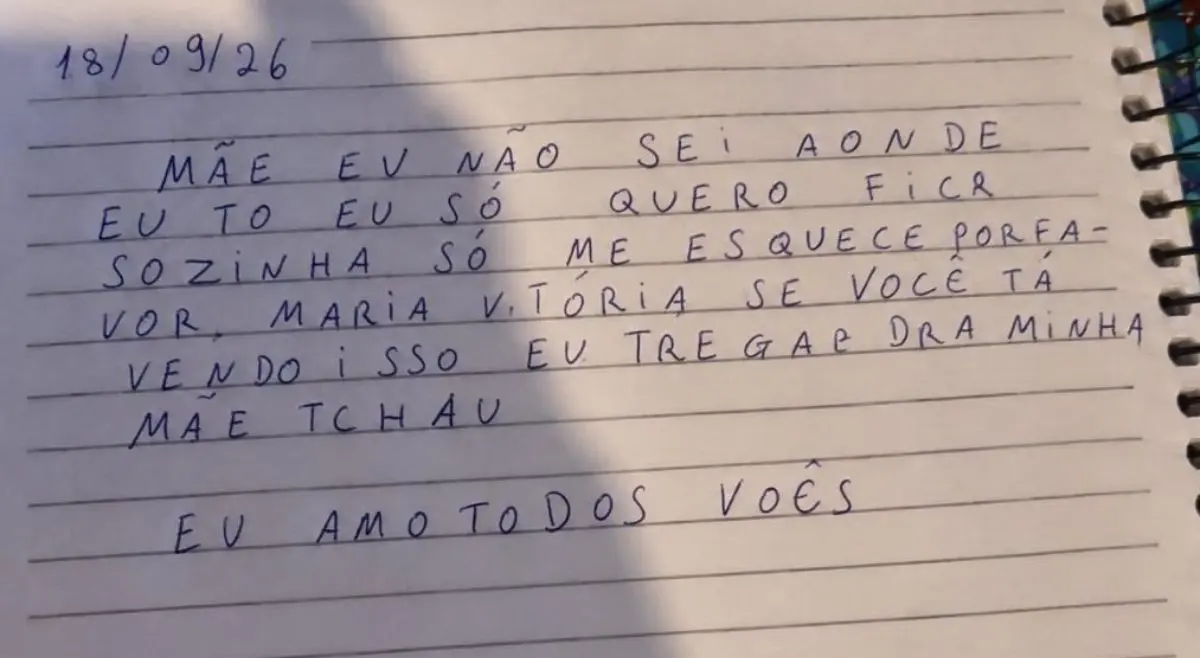 18/09/26
MÃE EU NÃO SEi AONDE
EU TO EU SÓ QUERO FiCR
SOZiNHA SÓ ME ESQUECE PORFA-
VOR. MARiA ViTÓRiA SE VOCÊ TÁ
VENDO iSSO EU TREGAR DRA MiNHA
MÃE TCHAU
EU AMO TODOS VOÊS